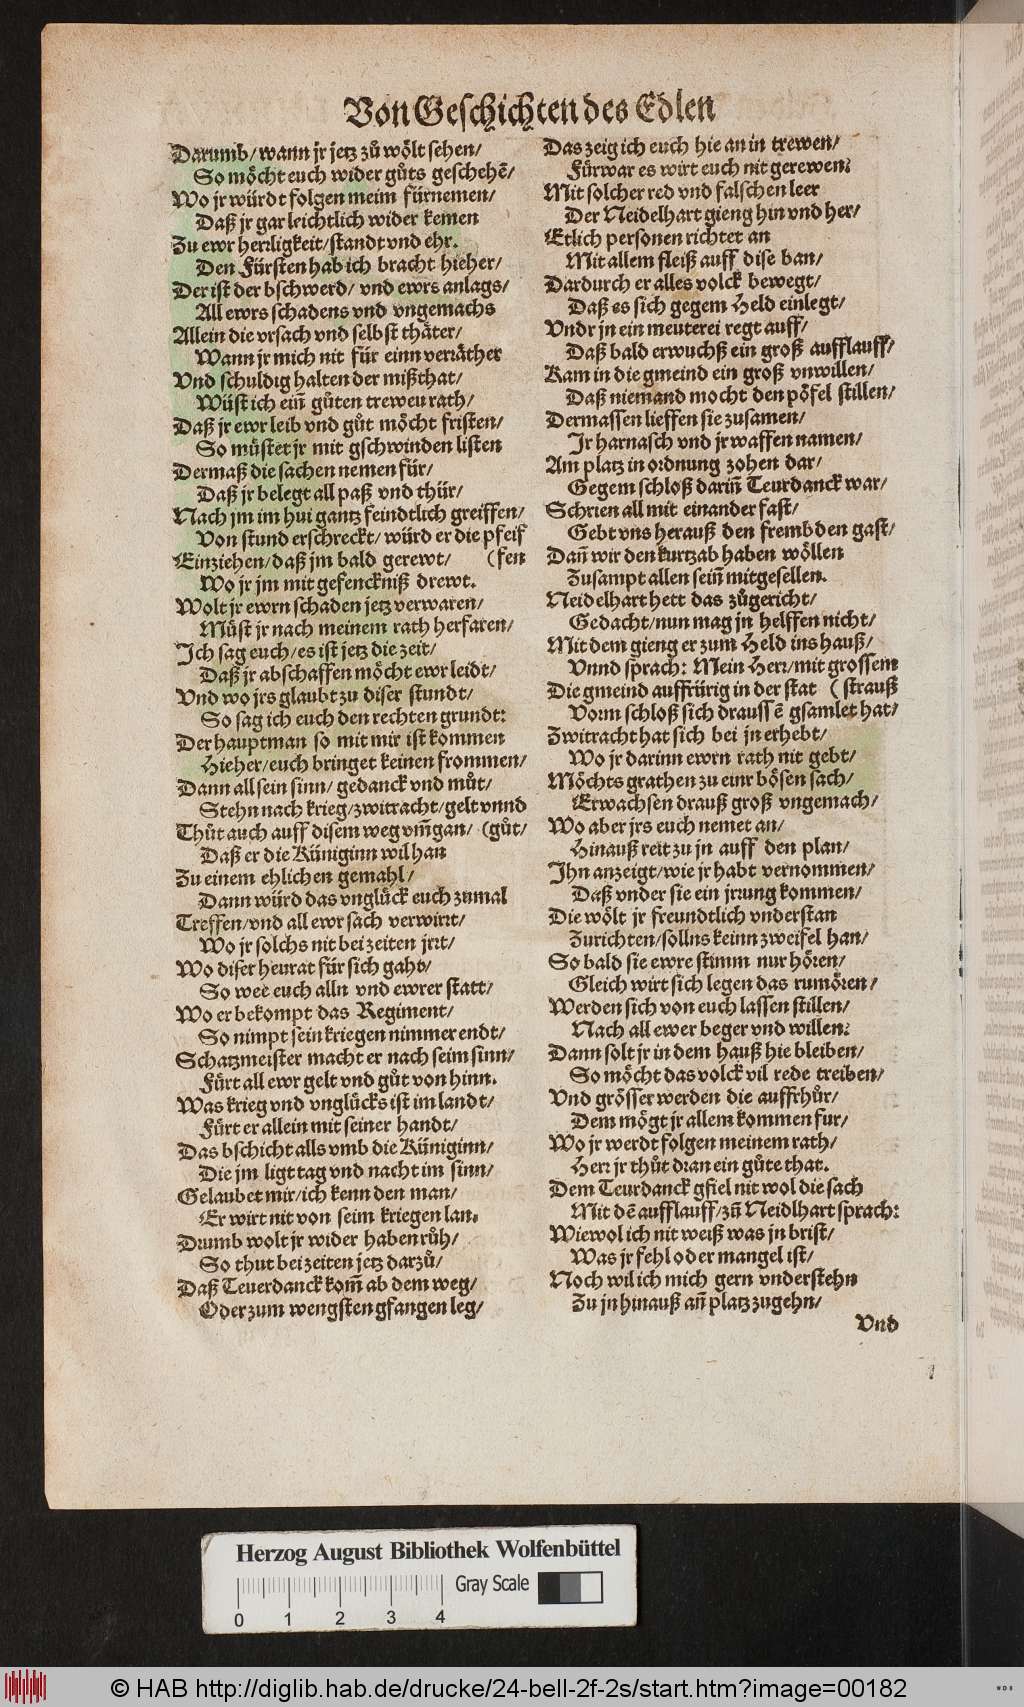 Von Geschichten des Edlen
Darumb/ wann jr jetz zů wölt sehen/
So möcht euch wider gůts geschehẽ/
Wo jr würdt folgen meim fürnemen/
Daß jr gar leichtlich wider kemen
Zu ewr herrligkeit/ standt vnd ehr.
Den Fürsten hab ich bracht hieher/
Der ist der bschwerd/ vnd ewrs anlags/
All ewrs schadens vnd vngemachs
Allein die vrsach vnd selbst thäter/
Wann jr mich nit für einn verräther
Vnd schuldig halten der mißthat/
Wüst ich ein̄ gůten trewen rath/
Daß jr ewr leib vnd gůt möcht fristen/
So müstet jr mit gschwinden listen
Dermaß die sachen nemen für/
Daß jr belegt all paß vnd thür/
Nach jm im hui gantz feindtlich greiffen/
Von stund erschreckt/ würd er die pfeif
Einziehen/ daß jm bald gerewt/ (fen
Wo jr jm mit gefenckniß drewt.
Wolt jr ewrn schaden jetz verwaren/
Müst jr nach meinem rath herfaren/
Ich sag euch/ es ist jetz die zeit/
Daß jr abschaffen möcht ewr leidt/
Vnd wo jrs glaubt zu diser stundt/
So sag ich euch den rechten grundt:
Der hauptman so mit mir ist kommen
Hieher/ euch bringet keinen frommen/
Dann all sein sinn/ gedanck vnd můt/
Stehn nach krieg/ zwitracht/ gelt vnnd
Thůt auch auff disem weg vm̄gan/ (gůt/
Daß er die Küniginn wil han
Zu einem ehlichen gemahl/
Dann würd das vnglück euch zumal
Treffen/ vnd all ewr sach verwirrt/
Wo jr solchs nit bei zeiten jrrt/
Wo diser heurat für sich gaht/
So wee euch alln vnd ewrer statt/
Wo er bekompt das Regiment/
So nimpt sein kriegen nimmer endt/
Schatzmeister macht er nach seim sinn/
Fürt all ewr gelt vnd gůt von hinn.
Was krieg vnd vnglücks ist im landt/
Fürt er allein mit seiner handt/
Das bschicht alls vmb die Küniginn/
Die jm ligt tag vnd nacht im sinn/
Gelaubet mir/ ich kenn den man/
Er wirt nit von seim kriegen lan.
Drumb wolt jr wider haben růh/
So thut bei zeiten jetz darzů/
Daß Teuerdanck kom̄ ab dem weg/
Oder zum wengsten gfangen leg/
Das zeig ich euch hie an in trewen/
Fürwar es wirt euch nit gerewen:
Mit solcher red vnd falschen leer
Der Neidelhart gieng hin vnd her/
Etlich personen richtet an
Mit allem fleiß auff dise ban/
Dardurch er alles volck bewegt/
Daß es sich gegem Held einlegt/
Vndr jn ein meuterei regt auff/
Daß bald erwuchß ein groß aufflauff/
Kam in die gmeind ein groß vnwillen/
Daß niemand mocht den pöfel stillen/
Dermassen lieffen sie zusamen/
Ir harnasch vnd jr waffen namen/
Am platz in ordnung zohen dar/
Gegem schloß darin̄ Teurdanck war/
Schrien all mit einander fast/
Gebt vns herauß den frembden gast/
Dan̄ wir den kurtzab haben wöllen
Zusampt allen sein̄ mitgesellen.
Neidelhart hett das zůgericht/
Gedacht/ nun mag jn helffen nicht/
Mit dem gieng er zum Held ins hauß/
Vnnd sprach: Mein Herr/ mit grossem
Die gmeind auffrürig in der stat (strauß
Vorm schloß sich draussẽ gsamlet hat/
Zwitracht hat sich bei jn erhebt/
Wo jr darinn ewrn rath nit gebt/
Möchts grathen zu einr bösen sach/
Erwachsen drauß groß vngemach/
Wo aber jrs euch nemet an/
Hinauß reit zu jn auff den plan/
Ihn anzeigt/ wie jr habt vernommen/
Daß vnder sie ein jrrung kommen/
Die wölt jr freundtlich vnderstan
Zurichten/ sollns keinn zweifel han/
So bald sie ewre stimm nur hören/
Gleich wirt sich legen das rumören/
Werden sich von euch lassen stillen/
Nach all ewer beger vnd willen:
Dann solt jr in dem hauß hie bleiben/
So möcht das volck vil rede treiben/
Vnd grösser werden die auffrhůr/
Dem mögt jr allem kommen fur/
Wo jr werdt folgen meinem rath/
Herr jr thůt dran ein gůte that.
Dem Teurdanck gfiel nit wol die sach
Mit dẽ aufflauff/ zů Neidlhart sprach:
Wiewol ich nit weiß was jn brist/
Was jr fehl oder mangel ist/
Noch wil ich mich gern vnderstehn
Zu jn hinauß an̄ platz zugehn/
Vnd
Herzog August Bibliothek Wolfenbüttel
Gray Scale
0 1 2 3 4
© HAB http://diglib.hab.de/drucke/24-bell-2f-2s/start.htm?image=00182